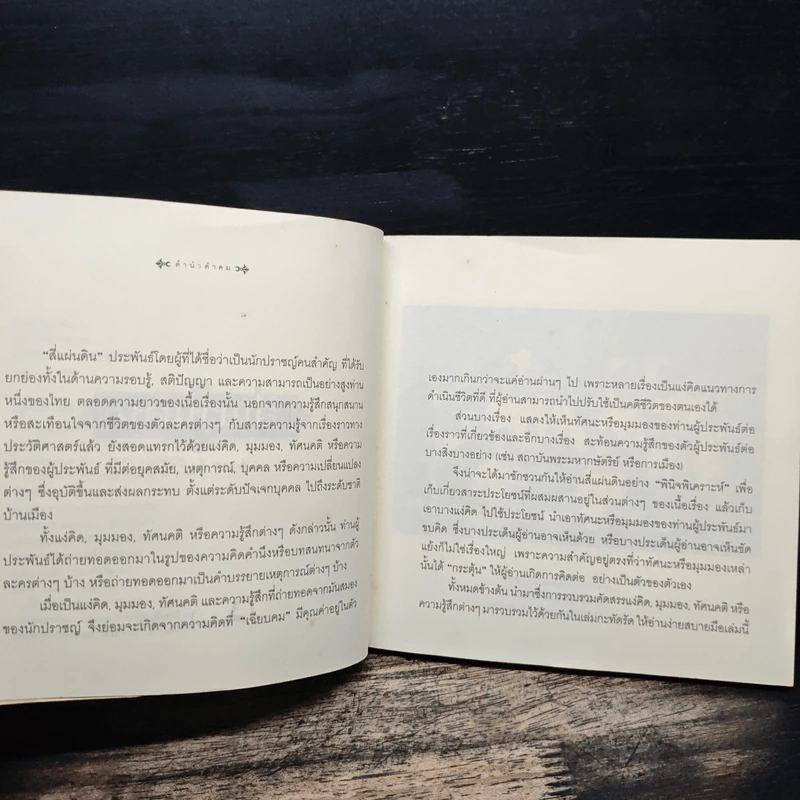 คำนำคำคม
"สี่แผ่นดิน" ประพันธ์โดยผู้ที่ได้ชื่อว่าเป็นนักปราชญ์คนสำคัญ ที่ได้รับ
ยกย่องทั้งในด้านความรอบรู้, สติปัญญา และความสามารถเป็นอย่างสูงท่าน
หนึ่งของไทย ตลอดความยาวของเนื้อเรื่องนั้น นอกจากความรู้สึกสนุกสนาน
หรือสะเทือนใจจากชีวิตของตัวละครต่างๆ กับสาระความรู้จากเรื่องราวทาง
ประวัติศาสตร์แล้ว ยังสอดแทรกไว้ด้วยแง่คิด, มุมมอง, ทัศนคติ หรือความ
รู้สึกของผู้ประพันธ์ ที่มีต่อยุคสมัย, เหตุการณ์, บุคคล หรือความเปลี่ยนแปลง
ต่างๆ ซึ่งอุบัติขึ้นและส่งผลกระทบ ตั้งแต่ระดับปัจเจกบุคคล ไปถึงระดับชาติ
บ้านเมือง
ทั้งแง่คิด, มุมมอง, ทัศนคติ หรือความรู้สึกต่างๆ ดังกล่าวนั้น ท่านผู้
ประพันธ์ได้ถ่ายทอดออกมาในรูปของความคิดคำนึงหรือบทสนทนาจากตัว
ละครต่างๆ บ้าง หรือถ่ายทอดออกมาเป็นคำบรรยายเหตุการณ์ต่างๆ บ้าง
เมื่อเป็นแง่คิด, มุมมอง, ทัศนคติ และความรู้สึกที่ถ่ายทอดจากมันสมอง
ของนักปราชญ์ จึงย่อมจะเกิดจากความคิดที่ "เฉียบคม" มีคุณค่าอยู่ในตัว
เองมากเกินกว่าจะแค่อ่านผ่านๆ ไป เพราะหลายเรื่องเป็นแง่คิดแนวทางการ
ดำเนินชีวิตที่ดี ที่ผู้อ่านสามารถนำไปปรับใช้เป็นคติชีวิตของตนเองได้
ส่วนบางเรื่อง แสดงให้เห็นทัศนะหรือมุมมองของท่านผู้ประพันธ์ต่อ
เรื่องราวที่เกี่ยวข้องและอีกบางเรื่อง สะท้อนความรู้สึกของตัวผู้ประพันธ์ต่อ
บางสิ่งบางอย่าง (เช่น สถาบันพระมหากษัตริย์ หรือการเมือง)
จึงน่าจะได้มาชักชวนกันให้อ่านสี่แผ่นดินอย่าง "พินิจพิเคราะห์" เพื่อ
เก็บเกี่ยวสาระประโยชน์ที่ผสมผสานอยู่ในส่วนต่างๆ ของเนื้อเรื่อง แล้วเก็บ
เอาบางแง่คิด ไปใช้ประโยชน์ นำเอาทัศนะหรือมุมมองของท่านผู้ประพันธ์มา
ขบคิด ซึ่งบางประเด็นผู้อ่านอาจเห็นด้วย หรือบางประเด็นผู้อ่านอาจเห็นขัด
แย้งก็ไม่ใช่เรื่องใหญ่ เพราะความสำคัญอยู่ตรงที่ว่าทัศนะหรือมุมมองเหล่า
นั้นได้ "กระตุ้น" ให้ผู้อ่านเกิดการคิดต่อ อย่างเป็นตัวของตัวเอง
ทั้งหมดข้างต้น นำมาซึ่งการรวบรวมคัดสรรแง่คิด, มุมมอง, ทัศนคติ หรือ
ความรู้สึกต่างๆ มารวบรวมไว้ด้วยกันในเล่มกะทัดรัด ให้อ่านง่ายสบายมือเล่มนี้